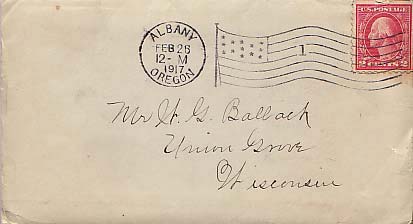 ALBANY
FEB 26
12-M
1917
OREGON
1
U.S. POSTAGE
2 CENTS 2
Mr W. G. Ballack
Union Grove
Wisconsin